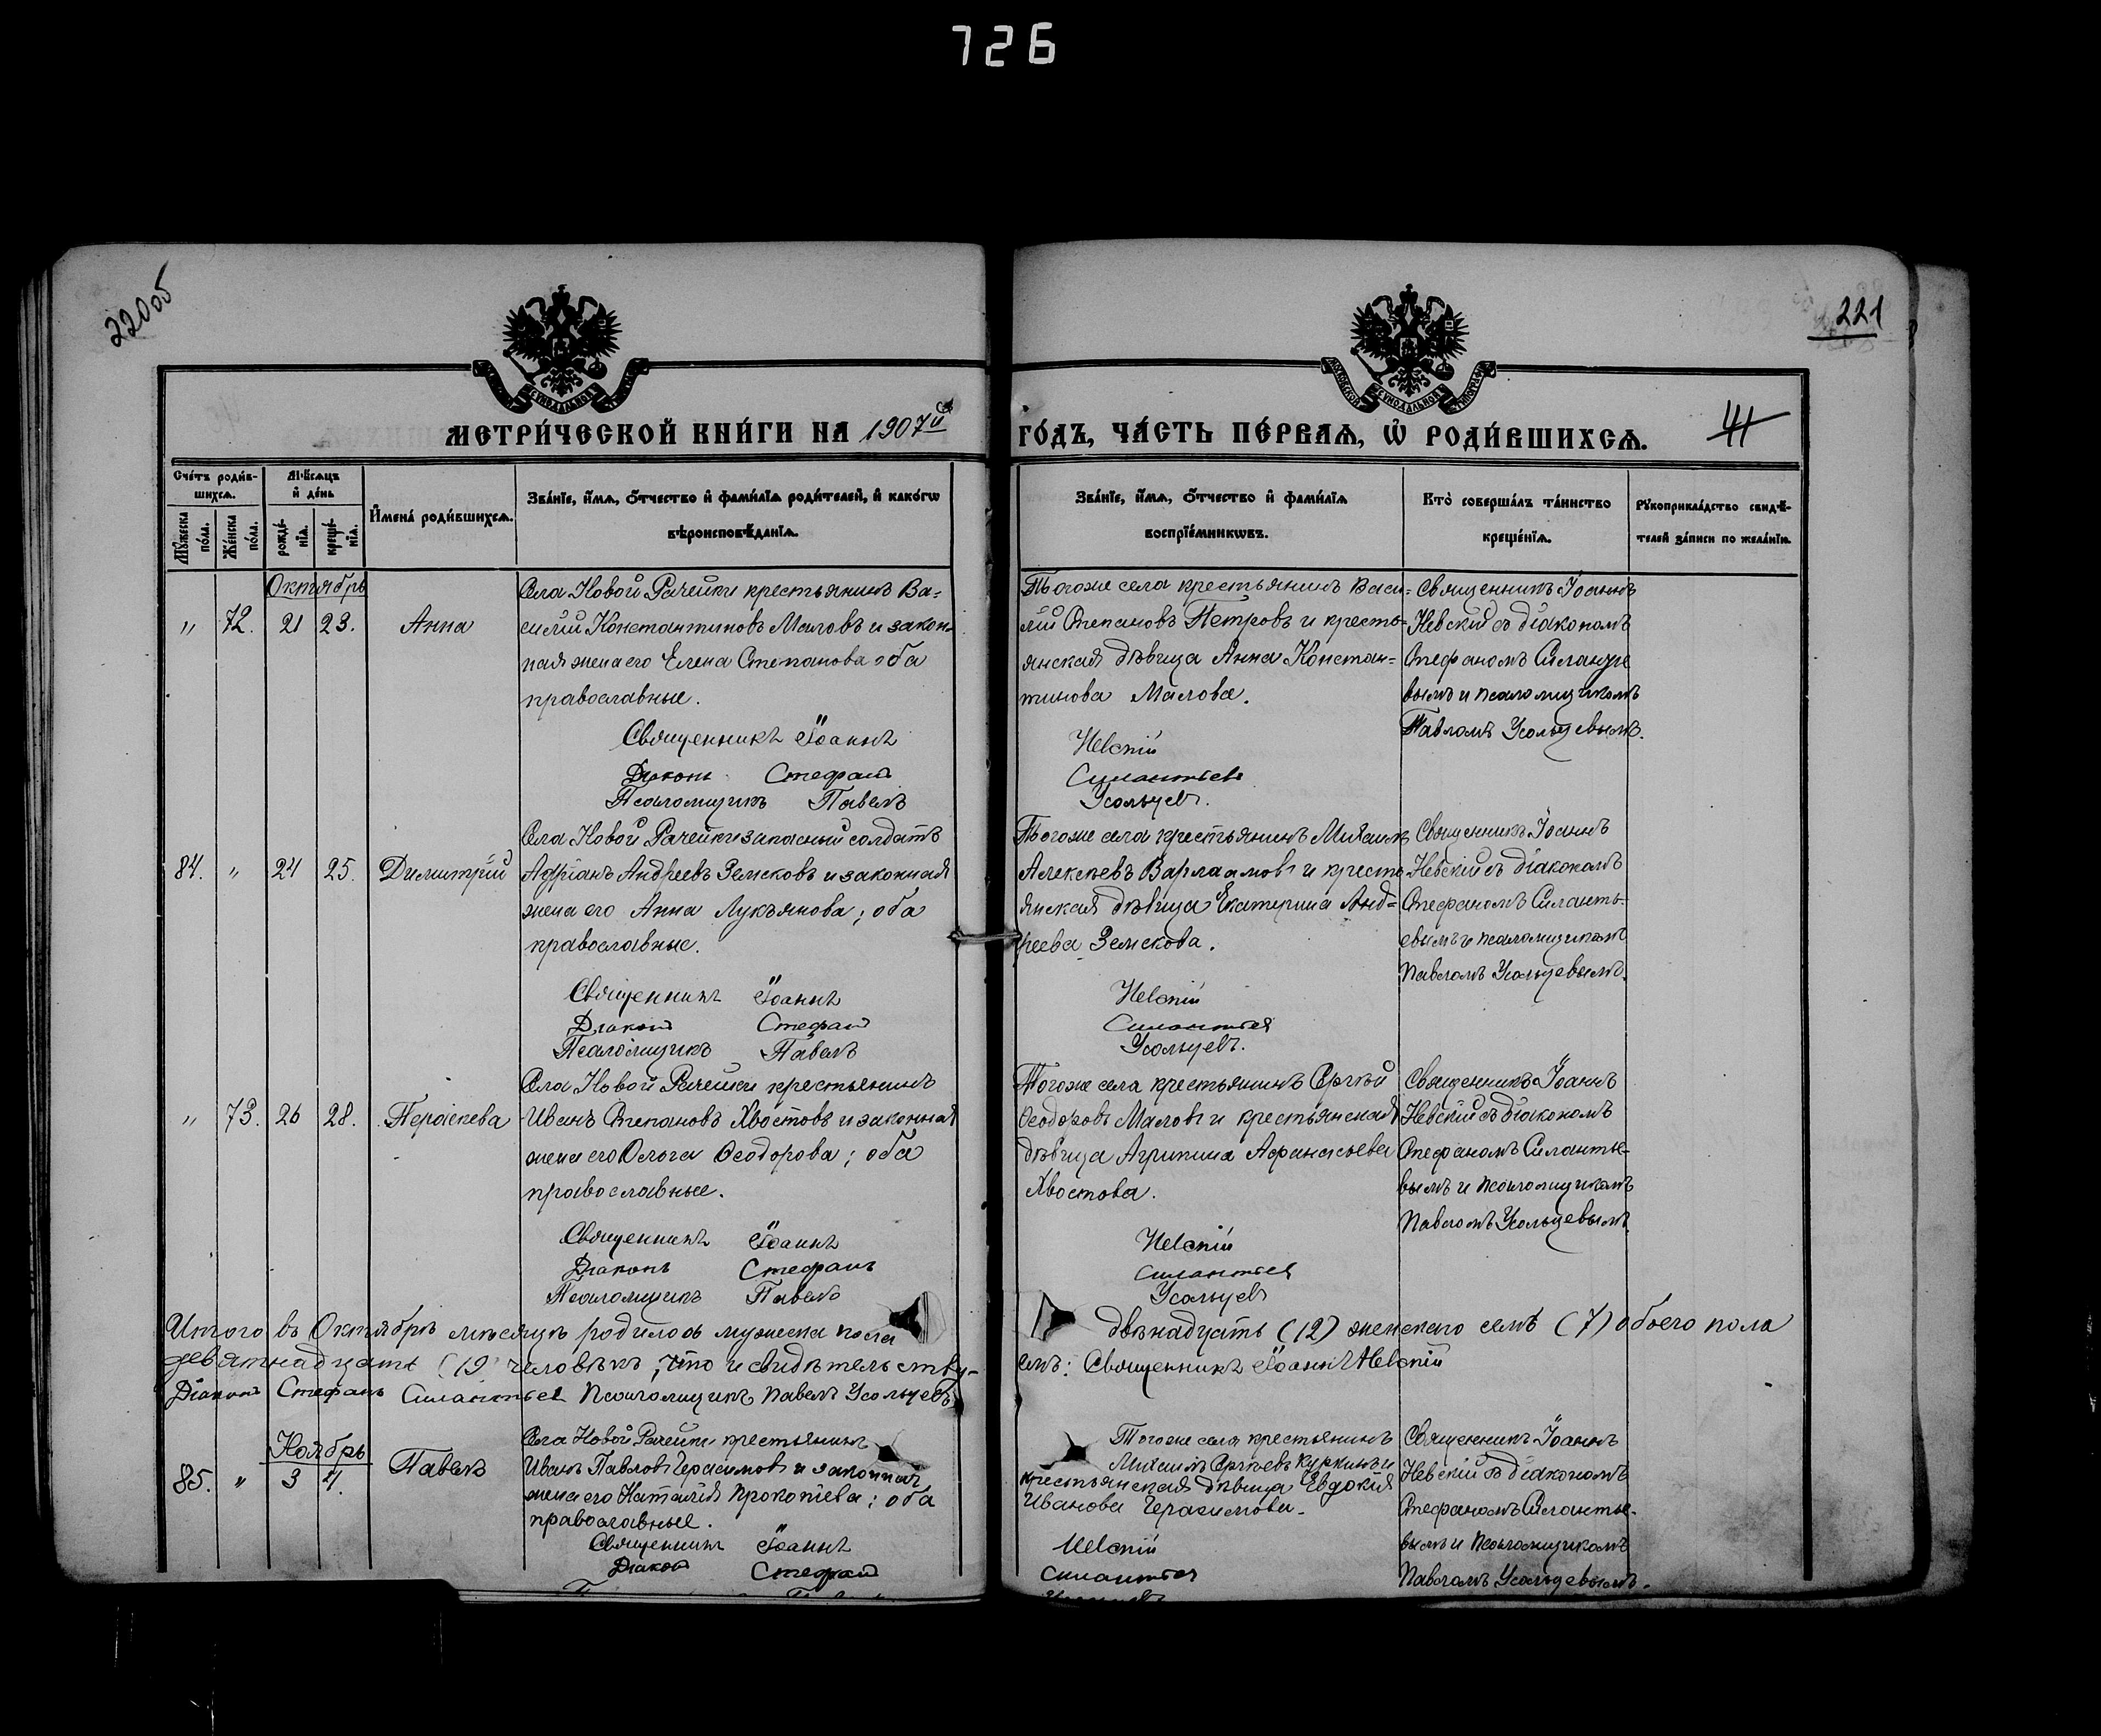 726
220об
221
МЕТРИ́ЧЕСКОЙ КНИ́ГИ НА 1907й
ГО́ДЪ, ЧА́СТЬ ПЕ́РВАѦ, Ѡ҆ РОДИ́ВШИХСѦ.
41
Сче́тъ роди́в-
шихсѧ.
Мѣ́сѧцъ
и҆ де́нь
Мꙋ́жеска
по́ла.
Же́нска
по́ла.
рожде́-
нїѧ.
креще́-
нїѧ.
И҆мена̀ роди́вшихсѧ.
Зва́нїе, и҆́мѧ, о҆́тчество и҆ фами́лїѧ роди́телей, и҆ како́гѡ
вѣроисповѣ́данїѧ.
Зва́нїе, и҆́мѧ, о҆́тчество и҆ фами́лїѧ
воспрїе́мникѡвъ.
Кто̀ соверша́лъ та́инство
креще́нїѧ.
Рꙋкоприкла́дство свидѣ́-
телей за́писи по жела́нїю.
Октябрь
" 72. 21 23. Анна
Села Новой Рачейки крестьянинъ Ва-
силій Константиновъ Маловъ и закон-
ная жена его Елена Степанова оба
православные.
Священникъ Іоаннъ
Діаконъ Стефанъ
Псаломщикъ Павелъ
Тогоже села крестьянинъ Васи-
лій Степановъ Петровъ и кресть-
янская дѣвица Анна Констан-
тинова Малова.
Невскій
Силантьевъ
Усольцевъ.
Священникъ Іоаннъ
Невскій съ діакономъ
Стефаномъ Силантье
вымъ и псаломщикомъ
Павломъ Усольцевымъ.
84. " 24 25. Димитрій
Села Новой Рачейки запасный солдатъ
Адріанъ Андреевъ Земсковъ и законная
жена его Анна Лукъянова; оба
православные.
Священникъ Іоаннъ
Діаконъ Стефанъ
Псаломщикъ Павелъ
Тогоже села крестьянинъ Михаилъ
Алексѣевъ Варламовъ и кресть-
янская дѣвица Екатерина Анд-
реева Земскова.
Невскій
Силантьев
Усольцевъ.
Священникъ Іоаннъ
Невскій съ діакономъ
Стефаномъ Силанть-
евымъ и псаломщикомъ
Павломъ Усольцевымъ.
" 73. 26 28. Параскева
Села Новой Рачейки крестьянинъ
Иванъ Степановъ Хвостовъ и законная
жена его Ольга Ѳеодорова; оба
православные.
Священникъ Іоаннъ
Діаконъ Стефанъ
Псаломщикъ Павелъ
Тогоже села крестьянинъ Сергѣй
Ѳеодоровъ Маловъ и крестьянская
дѣвица Агрипина Афанасьева
Хвостова.
Невскій
Силантьев
Усольцевъ
Священникъ Іоаннъ
Невскій съ діакономъ
Стефаномъ Силантье-
вымъ и псаломщикомъ
Павломъ Усольцевымъ.
Итого въ Октябрѣ мѣсяцѣ родилось мужеска пола двѣнадцать (12) женскаго семь (7) обоего пола
девятнадцать (19 человѣкъ, что и свидѣтельству- емъ: Священникъ Іоаннъ Невскій
Діаконъ Стефанъ Силантьев Псаломщикъ Павелъ Усольцевъ
Ноябрь
85. " 3 4. Павелъ
Села Новой Рачейки крестьянинъ
Иванъ Павловъ Герасимовъ и законная
жена его Наталія Прокопіева; оба
православные.
Священникъ Іоаннъ
Діаконъ Стефанъ
Тогоже села крестьянинъ
Михаилъ Сергѣевъ Куркинъ и
крестьянская дѣвица Евдокія
Иванова Герасимова.
Невскій
Силантьев
Священникъ Іоаннъ
Невскій съ діакономъ
Стефаномъ Силантье-
вымъ и псаломщикомъ
Павломъ Усольцевымъ.